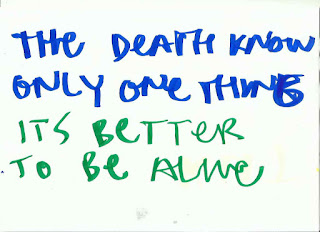 THE DEATH KNOW
ONLY ONE THING
ITS BETTER
TO BE ALIVE